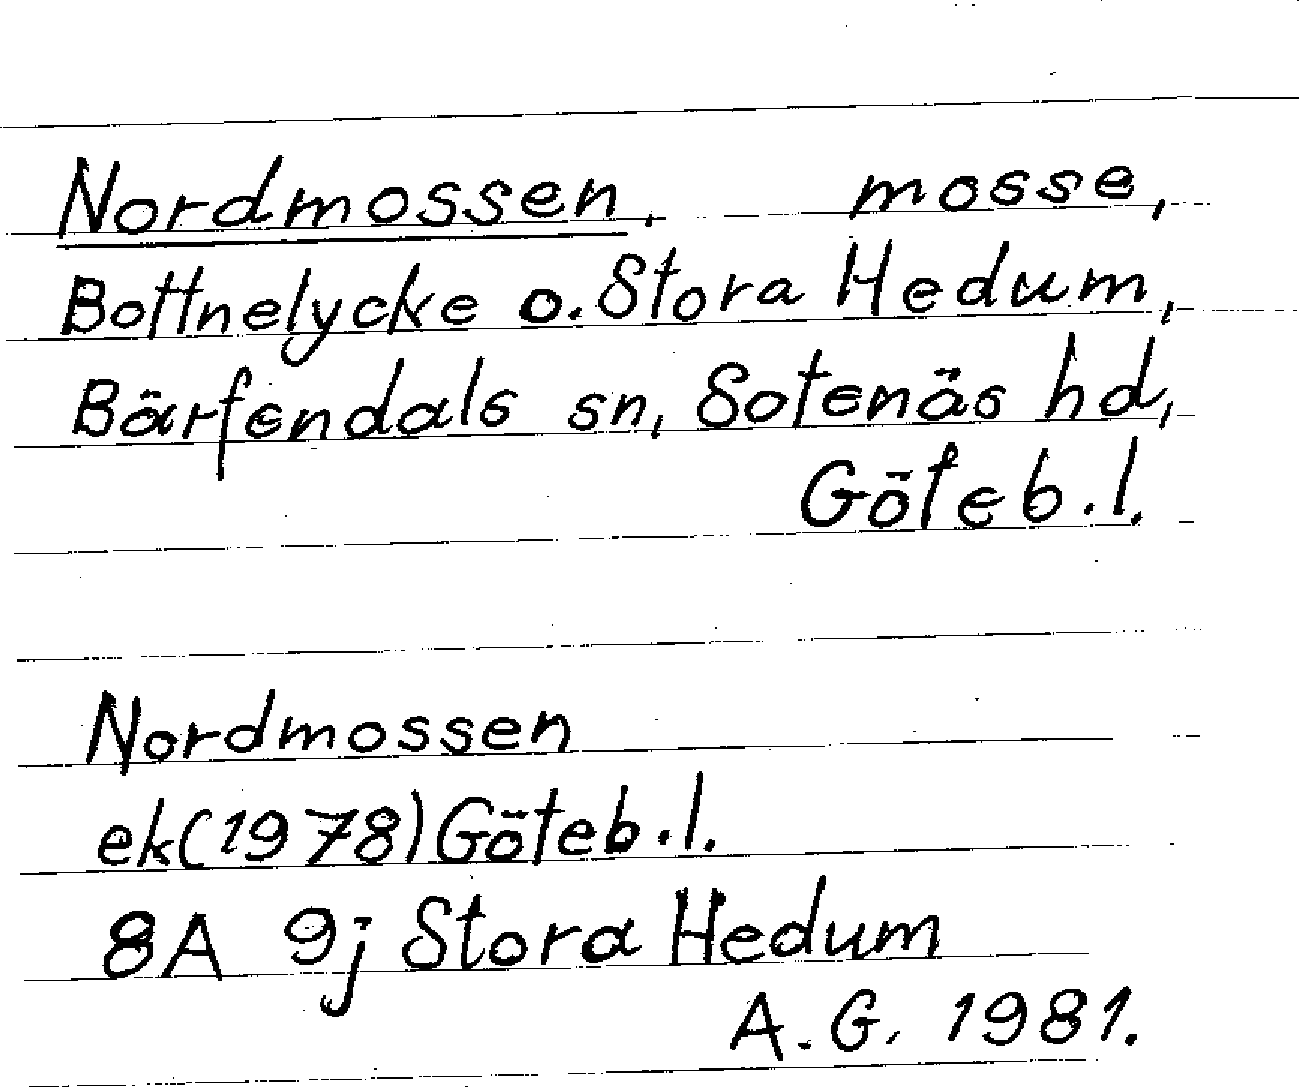 Nordmossen. mosse,
Bottnelycke o. Stora Hedum,
Bärfendals sn, Sotenäs hd,
Göteb.l.
Nordmossen
ek(1978) Göteb.l.
8A 9j Stora Hedum
A.G. 1981.